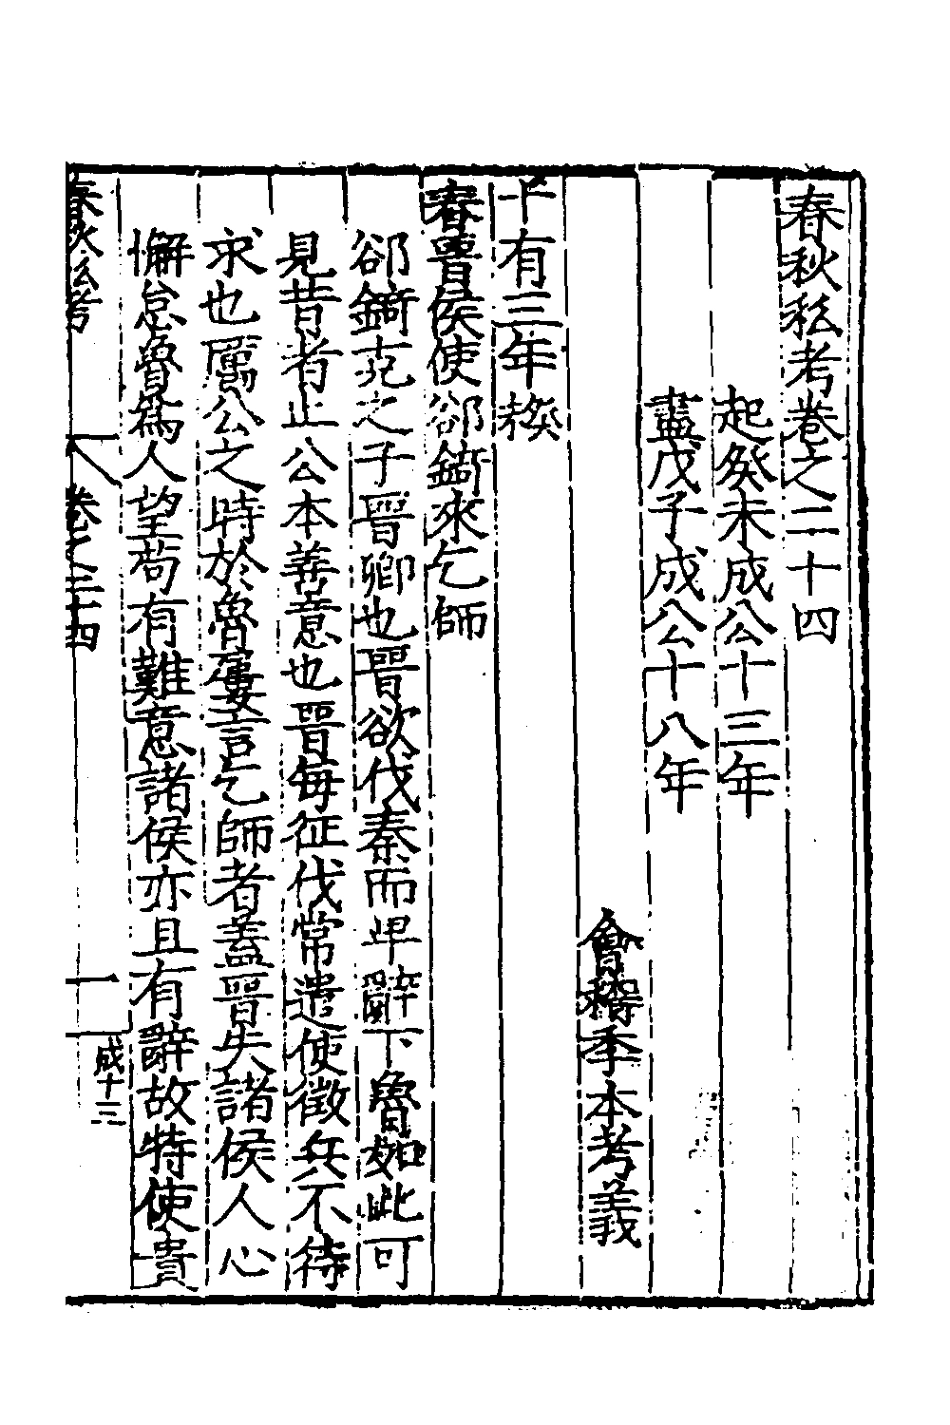 春秋私考卷之二十四
起癸未成公十三年
盡戊子成公十八年
會稽季本考義
十有三年
春晉侯使郤錡來乞師
郤錡克之子晉卿也晉欲伐秦而卑辭下魯如此可
見昔者止公本善意也晉每征伐常遣使徵兵不待
求也厲公之時於魯屢言乞師者蓋晉失諸侯人心
懈怠魯為人望苟有難意諸侯亦且有辭故特使貴
春秋私考
卷之二十四
一
成十三